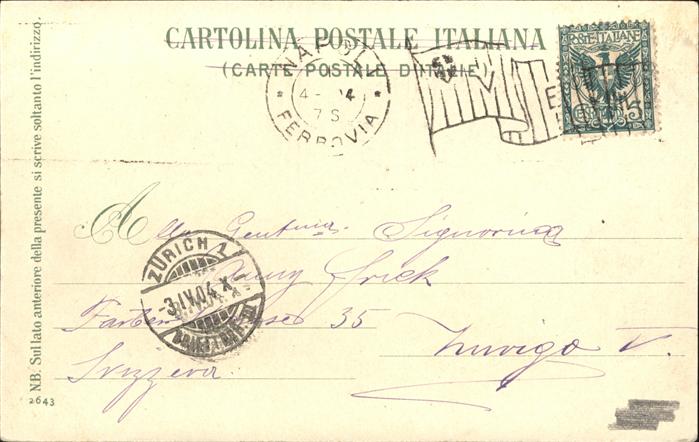 CARTOLINA POSTALE ITALIANA
(CARTE POSTALE D'ITALIE)
NAPOLI
4- 04
7 S
* FERROVIA *
POSTE ITALIANE
5
N.B. Sul lato anteriore della presente si scrive soltanto l'indirizzo.
Alla Gentma. Signorina
Frick
ZÜRICH 1
-3.IV.04.X-
35
Zurigo V.
Svizzera.
2643